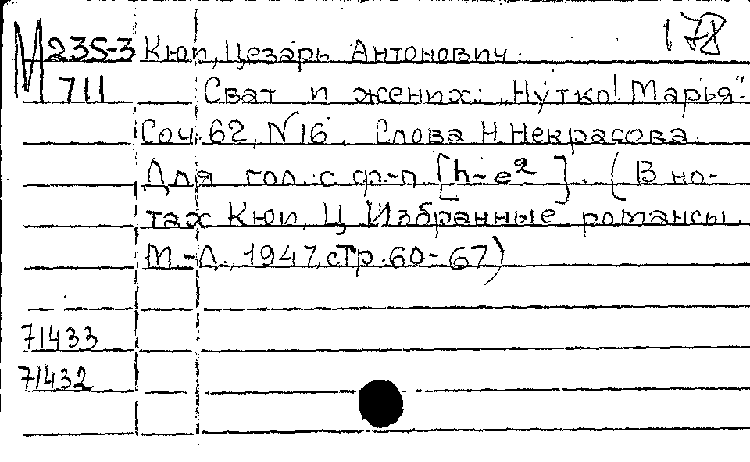 178
М 235-3 Кюи, Цезарь Антонович.
711 Сват и жених: „Нутко! Марья".
Соч. 62, N16. Слова Н. Некрасова.
Для гол. с ф-п [h-e²]. (В но-
тах Кюи, Ц. Избранные романсы.
М.-Л., 1947, стр. 60-67)
71433
71432